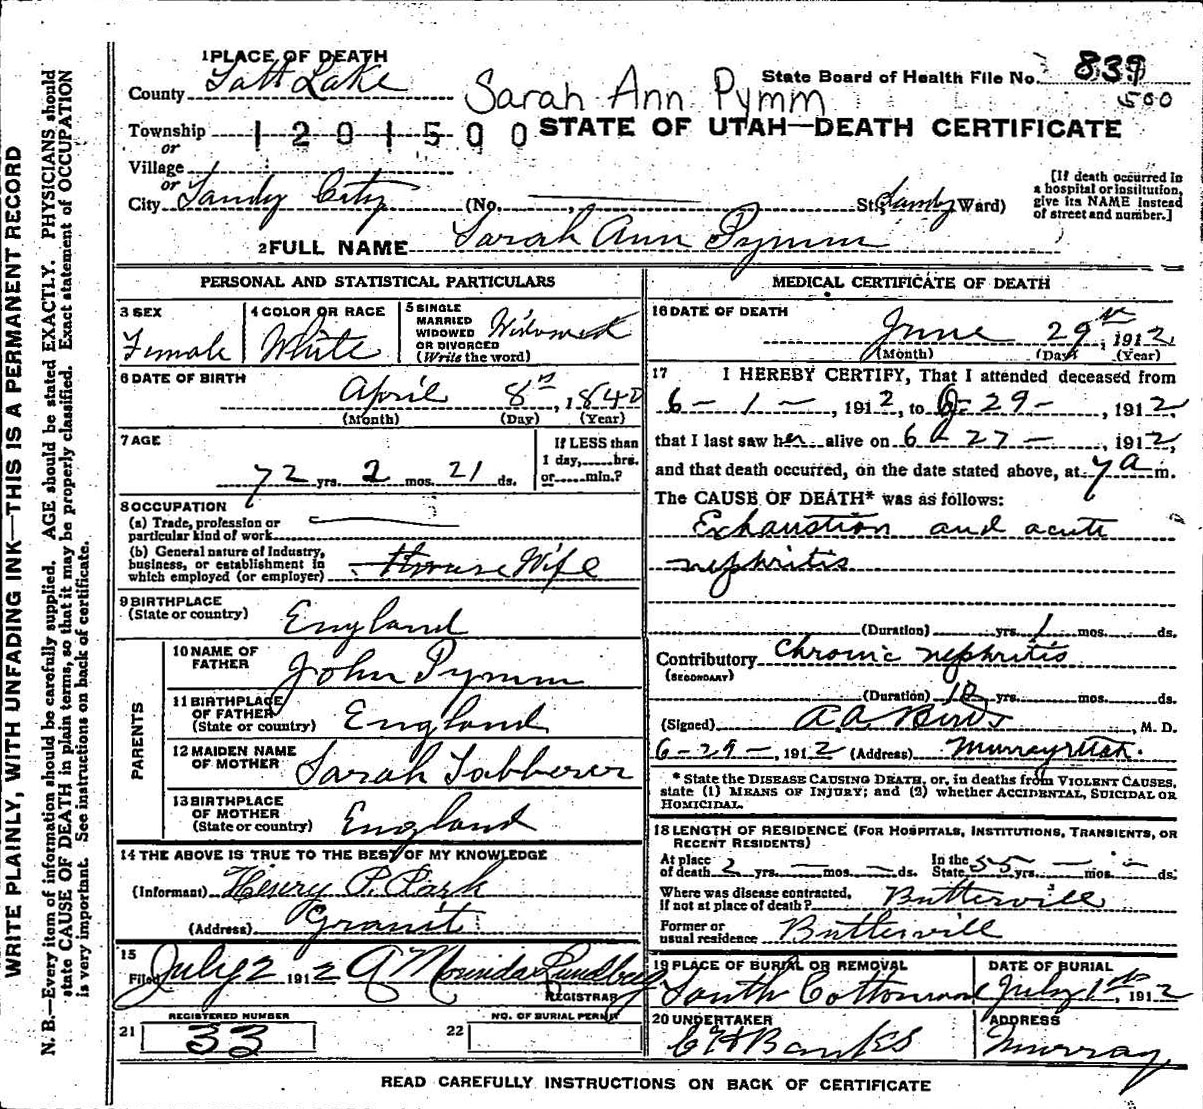 WRITE PLAINLY, WITH UNFADING INK—THIS IS A PERMANENT RECORD
N. B.—Every item of information should be carefully supplied. AGE should be stated EXACTLY. PHYSICIANS should
state CAUSE OF DEATH in plain terms, so that it may be properly classified. Exact statement of OCCUPATION
is very important. See instructions on back of certificate.
1 PLACE OF DEATH
County Salt Lake
Sarah Ann Pymm
State Board of Health File No. 839
500
Township 1201500
STATE OF UTAH—DEATH CERTIFICATE
or
Village
or
City Sandy City (No. , St; Sandy Ward)
[If death occurred in
a hospital or institution,
give its NAME instead
of street and number.]
2 FULL NAME Sarah Ann Pymm
PERSONAL AND STATISTICAL PARTICULARS
3 SEX
Female
4 COLOR OR RACE
White
5 SINGLE
MARRIED
WIDOWED
OR DIVORCED
(Write the word)
Widowed
6 DATE OF BIRTH
April 8th, 1840
(Month) (Day) (Year)
7 AGE
72 yrs. 2 mos. 21 ds.
If LESS than
1 day, hrs.
or min.?
8 OCCUPATION
(a) Trade, profession or
particular kind of work
(b) General nature of Industry,
business, or establishment in
which employed (or employer) House Wife
9 BIRTHPLACE
(State or country) England
PARENTS
10 NAME OF
FATHER John Pymm
11 BIRTHPLACE
OF FATHER
(State or country) England
12 MAIDEN NAME
OF MOTHER Sarah Tabberer
13 BIRTHPLACE
OF MOTHER
(State or country) England
14 THE ABOVE IS TRUE TO THE BEST OF MY KNOWLEDGE
(Informant) Henry P. Park
(Address) Granit
15
Filed July 2 1912 A Morinda Lundberg
REGISTRAR
REGISTERED NUMBER
21 33
NO. OF BURIAL PERMIT
22
MEDICAL CERTIFICATE OF DEATH
16 DATE OF DEATH
June 29th, 1912
(Month) (Day) (Year)
17 I HEREBY CERTIFY, That I attended deceased from
6 - 1 -, 1912, to 6 - 29 -, 1912
that I last saw her alive on 6 - 27 -, 1912,
and that death occurred, on the date stated above, at 7 a m.
The CAUSE OF DEATH* was as follows:
Exhaustion and acute
nephritis
(Duration) yrs. 1 mos. ds.
Contributory Chronic nephritis
(SECONDARY)
(Duration) 10 yrs. mos. ds.
(Signed) , M. D.
6-29-, 1912 (Address) Murray Utah.
* State the DISEASE CAUSING DEATH, or, in deaths from VIOLENT CAUSES,
state (1) MEANS OF INJURY; and (2) whether ACCIDENTAL, SUICIDAL OR
HOMICIDAL.
18 LENGTH OF RESIDENCE (FOR HOSPITALS, INSTITUTIONS, TRANSIENTS, OR
RECENT RESIDENTS)
At place
of death 2 yrs. — mos. — ds. In the
State 55 yrs. — mos. — ds.
Where was disease contracted,
if not at place of death? Buttervill
Former or
usual residence Buttervill
19 PLACE OF BURIAL OR REMOVAL
South Cottonwood
DATE OF BURIAL
July 1st, 1912
20 UNDERTAKER
Banks
ADDRESS
Murray
READ CAREFULLY INSTRUCTIONS ON BACK OF CERTIFICATE